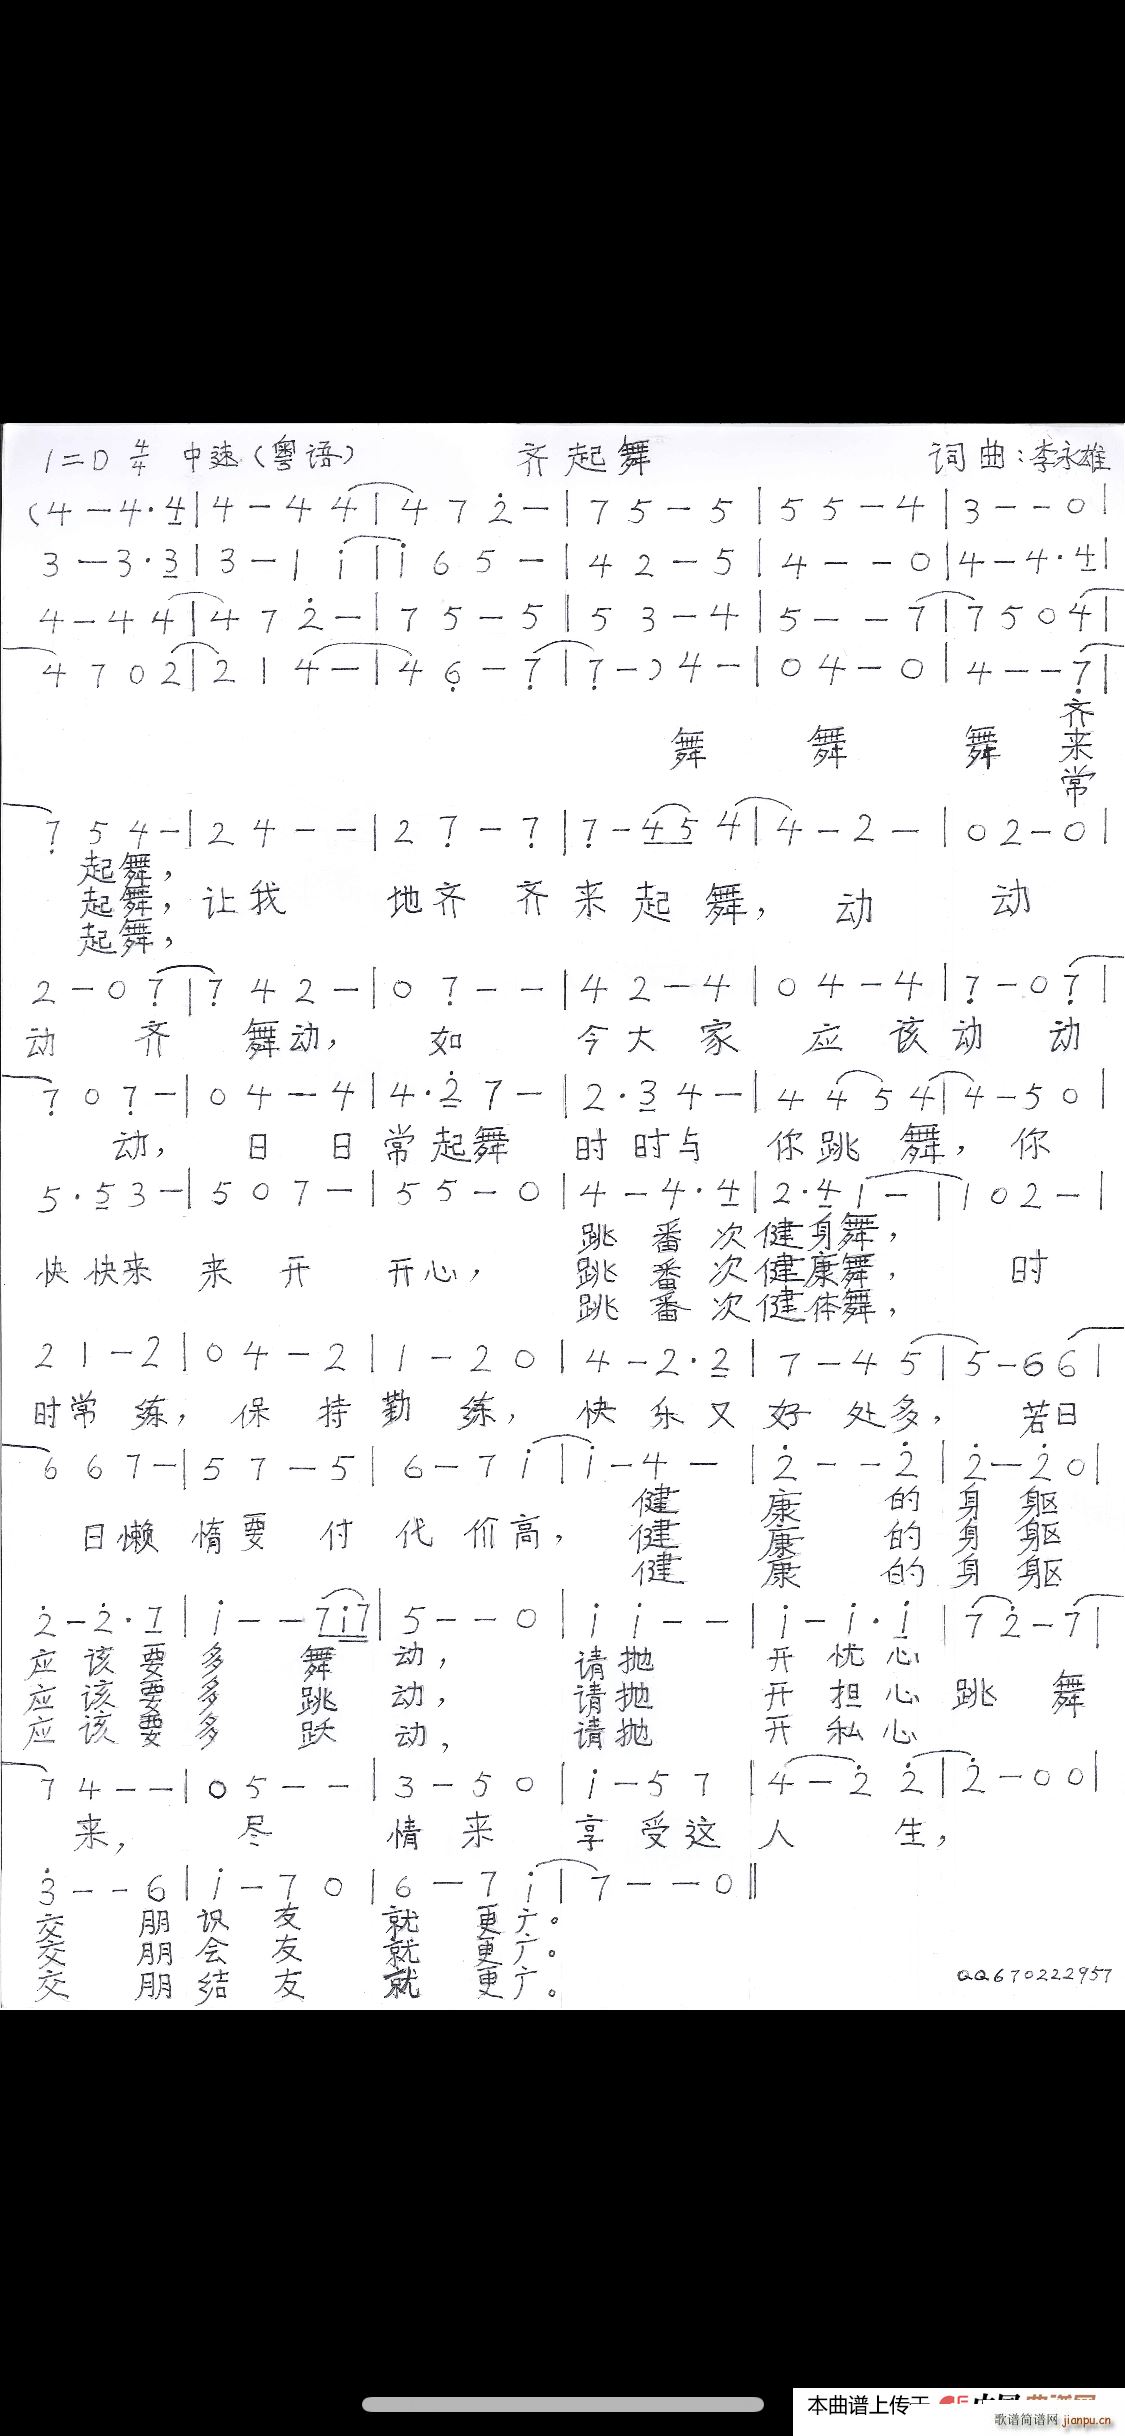 1=D 4/4 中速（粤语） 齐起舞 词曲：李永雄
(4 — 4·4 | 4 — 4 4 | 4 7 2̇ — | 7 5 — 5 | 5 5 — 4 | 3 — — 0 |
3 — 3·3 | 3 — 1 i̇ | i̇ 6 5 — | 4 2 — 5 | 4 — — 0 | 4 — 4·4 |
4 — 4 4 | 4 7 2̇ — | 7 5 — 5 | 5 3 — 4 | 5 — — 7 | 7 5 0 4 |
4 7 0 2 | 2 1 4 — | 4 6̣ — 7̣ | 7̣ — ) 4 — | 0 4 — 0 | 4 — — 7̣ |
齐
舞 舞 舞 来
常
7̣ 5 4 — | 2 4 — — | 2 7̣ — 7̣ | 7̣ — 4 5 4 | 4 — 2 — | 0 2 — 0 |
起舞，
起舞，让我 地齐 齐来起舞，动 动
起舞，
2 — 0 7̣ | 7̣ 4 2 — | 0 7̣ — — | 4 2 — 4 | 0 4 — 4 | 7̣ — 0 7̣ |
动 齐 舞动， 如 今大 家 应 该动 动
7̣ 0 7̣ — | 0 4 — 4 | 4·2̇ 7 — | 2·3 4 — | 4 4 5 4 | 4 — 5 0 |
动， 日 日 常起舞 时时与 你跳 舞， 你
5·5 3 — | 5 0 7 — | 5 5 — 0 | 4 — 4·4 | 2·4 1 — | 1 0 2 — |
跳 番 次健身舞，
快快来 来 开 开心， 跳 番 次健康舞， 时
跳 番 次健体舞，
2 1 — 2 | 0 4 — 2 | 1 — 2 0 | 4 — 2·2 | 7 — 4 5 | 5 — 6 6 |
时常 练， 保 持 勤 练， 快 乐 又 好 处多， 若日
6 6 7 — | 5 7 — 5 | 6 — 7 i̇ | i̇ — 4 — | 2̇ — — 2̇ | 2̇ — 2̇ 0 |
健 康 的 身 躯
日懒 惰要 付 代 价高， 健 康 的 身 躯
健 康 的 身 躯
2̇ — 2̇·7 | i̇ — — 7i̇7 | 5 — — 0 | i̇ i̇ — — | i̇ — i̇·i̇ | 7 2̇ — 7 |
应 该 要 多 舞 动， 请抛 开 忧 心
应 该 要 多 跳 动， 请抛 开 担 心 跳 舞
应 该 要 多 跃 动， 请抛 开 私 心
7 4 — — | 0 5 — — | 3 — 5 0 | i̇ — 5 7 | 4 — 2̇ 2̇ | 2̇ — 0 0 |
来， 尽 情 来 享 受这 人 生，
3̇ — — 6 | i̇ — 7 0 | 6 — 7 i̇ | 7 — — 0 ‖
交 朋 识 友 就 更广。
交 朋 会 友 就 更广。
交 朋 结 友 就 更广。
QQ670222957
本曲谱上传于
歌谱简谱网 jianpu.cn